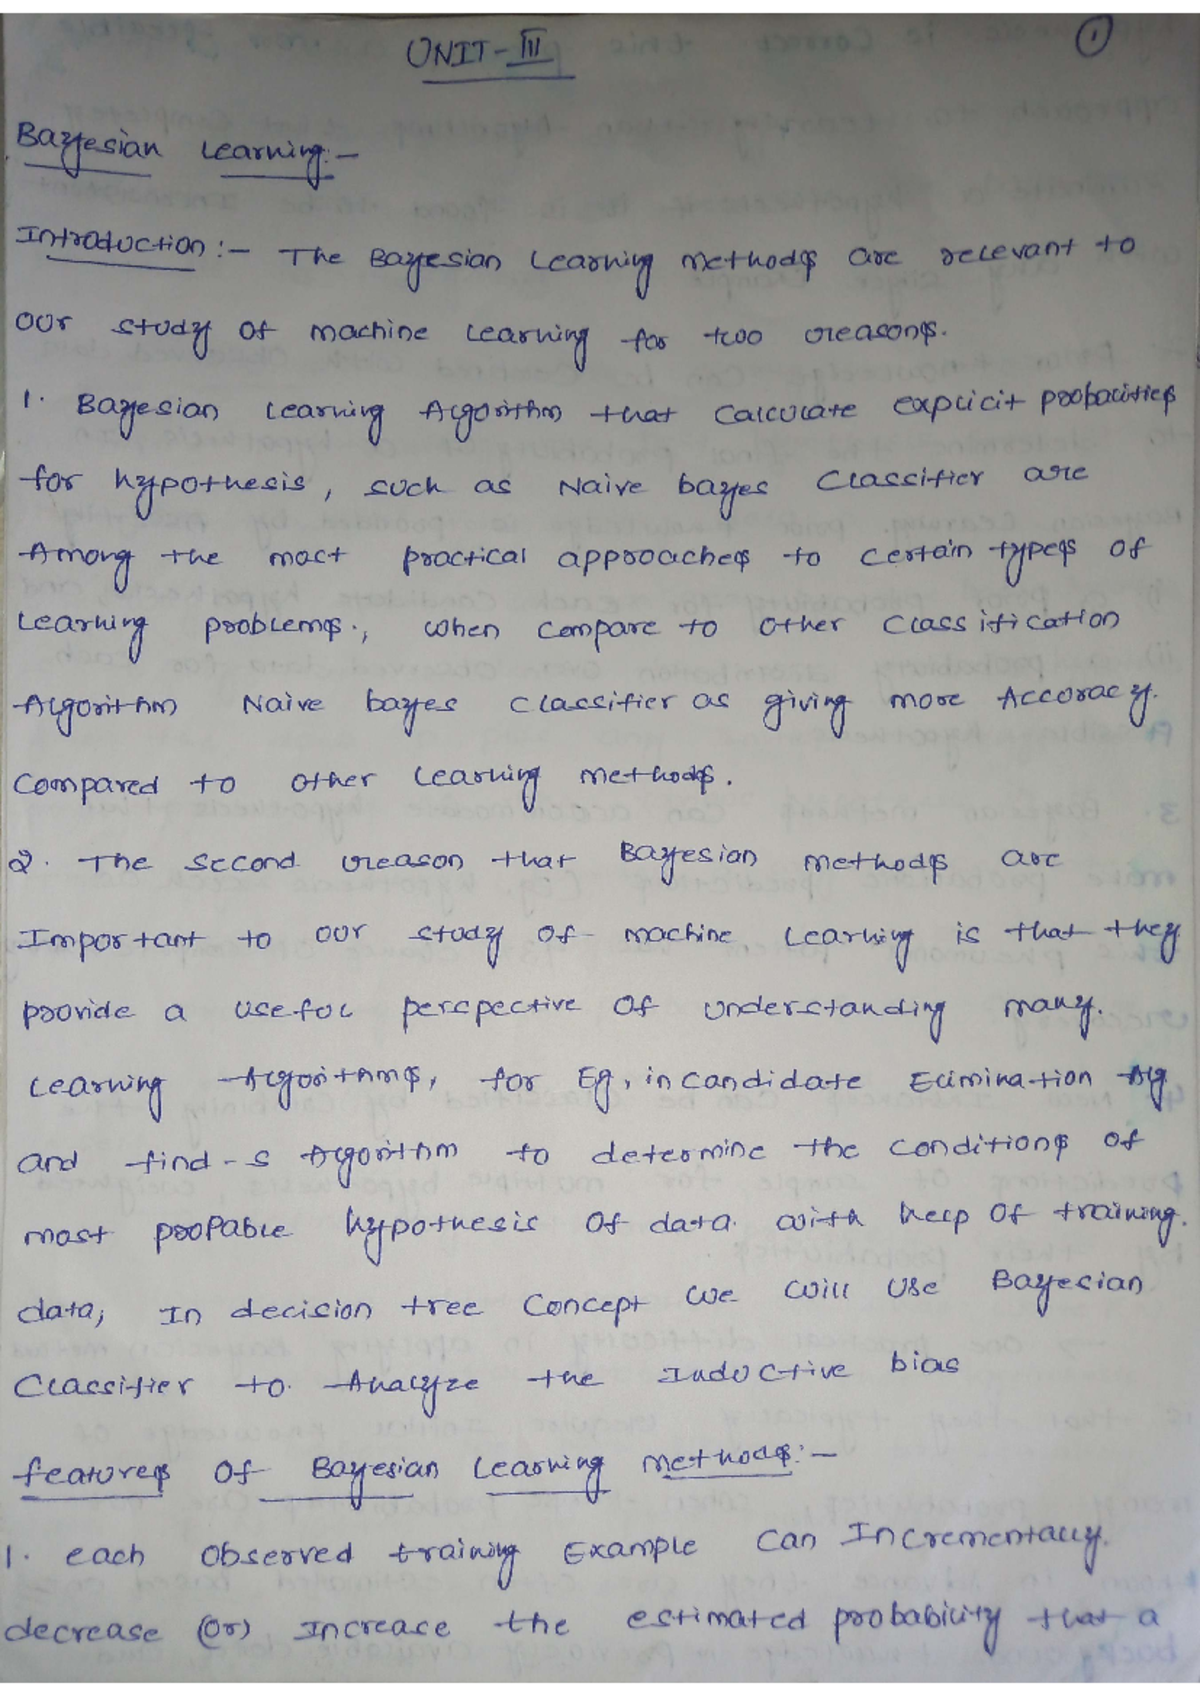 UNIT-III
1
Bayesian Learning:-
Introduction:- The Bayesian Learning methods are relevant to
our study of machine learning for two reasons.
1. Bayesian Learning Algorithm that calculate explicit probabilities
for hypothesis, such as Naive bayes Classifier are
Among the most practical approaches to certain types of
Learning problems., when compare to other classification
Algorithm Naive bayes classifier as giving more Accuracy.
Compared to other learning methods.
2. The second reason that Bayesian methods are
Important to our study of machine Learning is that they
provide a useful perspective of understanding many.
Learning Algorithms, for Eg, in candidate Elimination Alg
and find-s Algorithm to determine the conditions of
most propable hypothesis of data with help of training.
data; In decision tree concept we will use Bayesian
Classifier to Analyze the Inductive bias
features of Bayesian Learning methods:-
1. each observed training Example can Incrementally.
decrease (or) increase the estimated probability that a